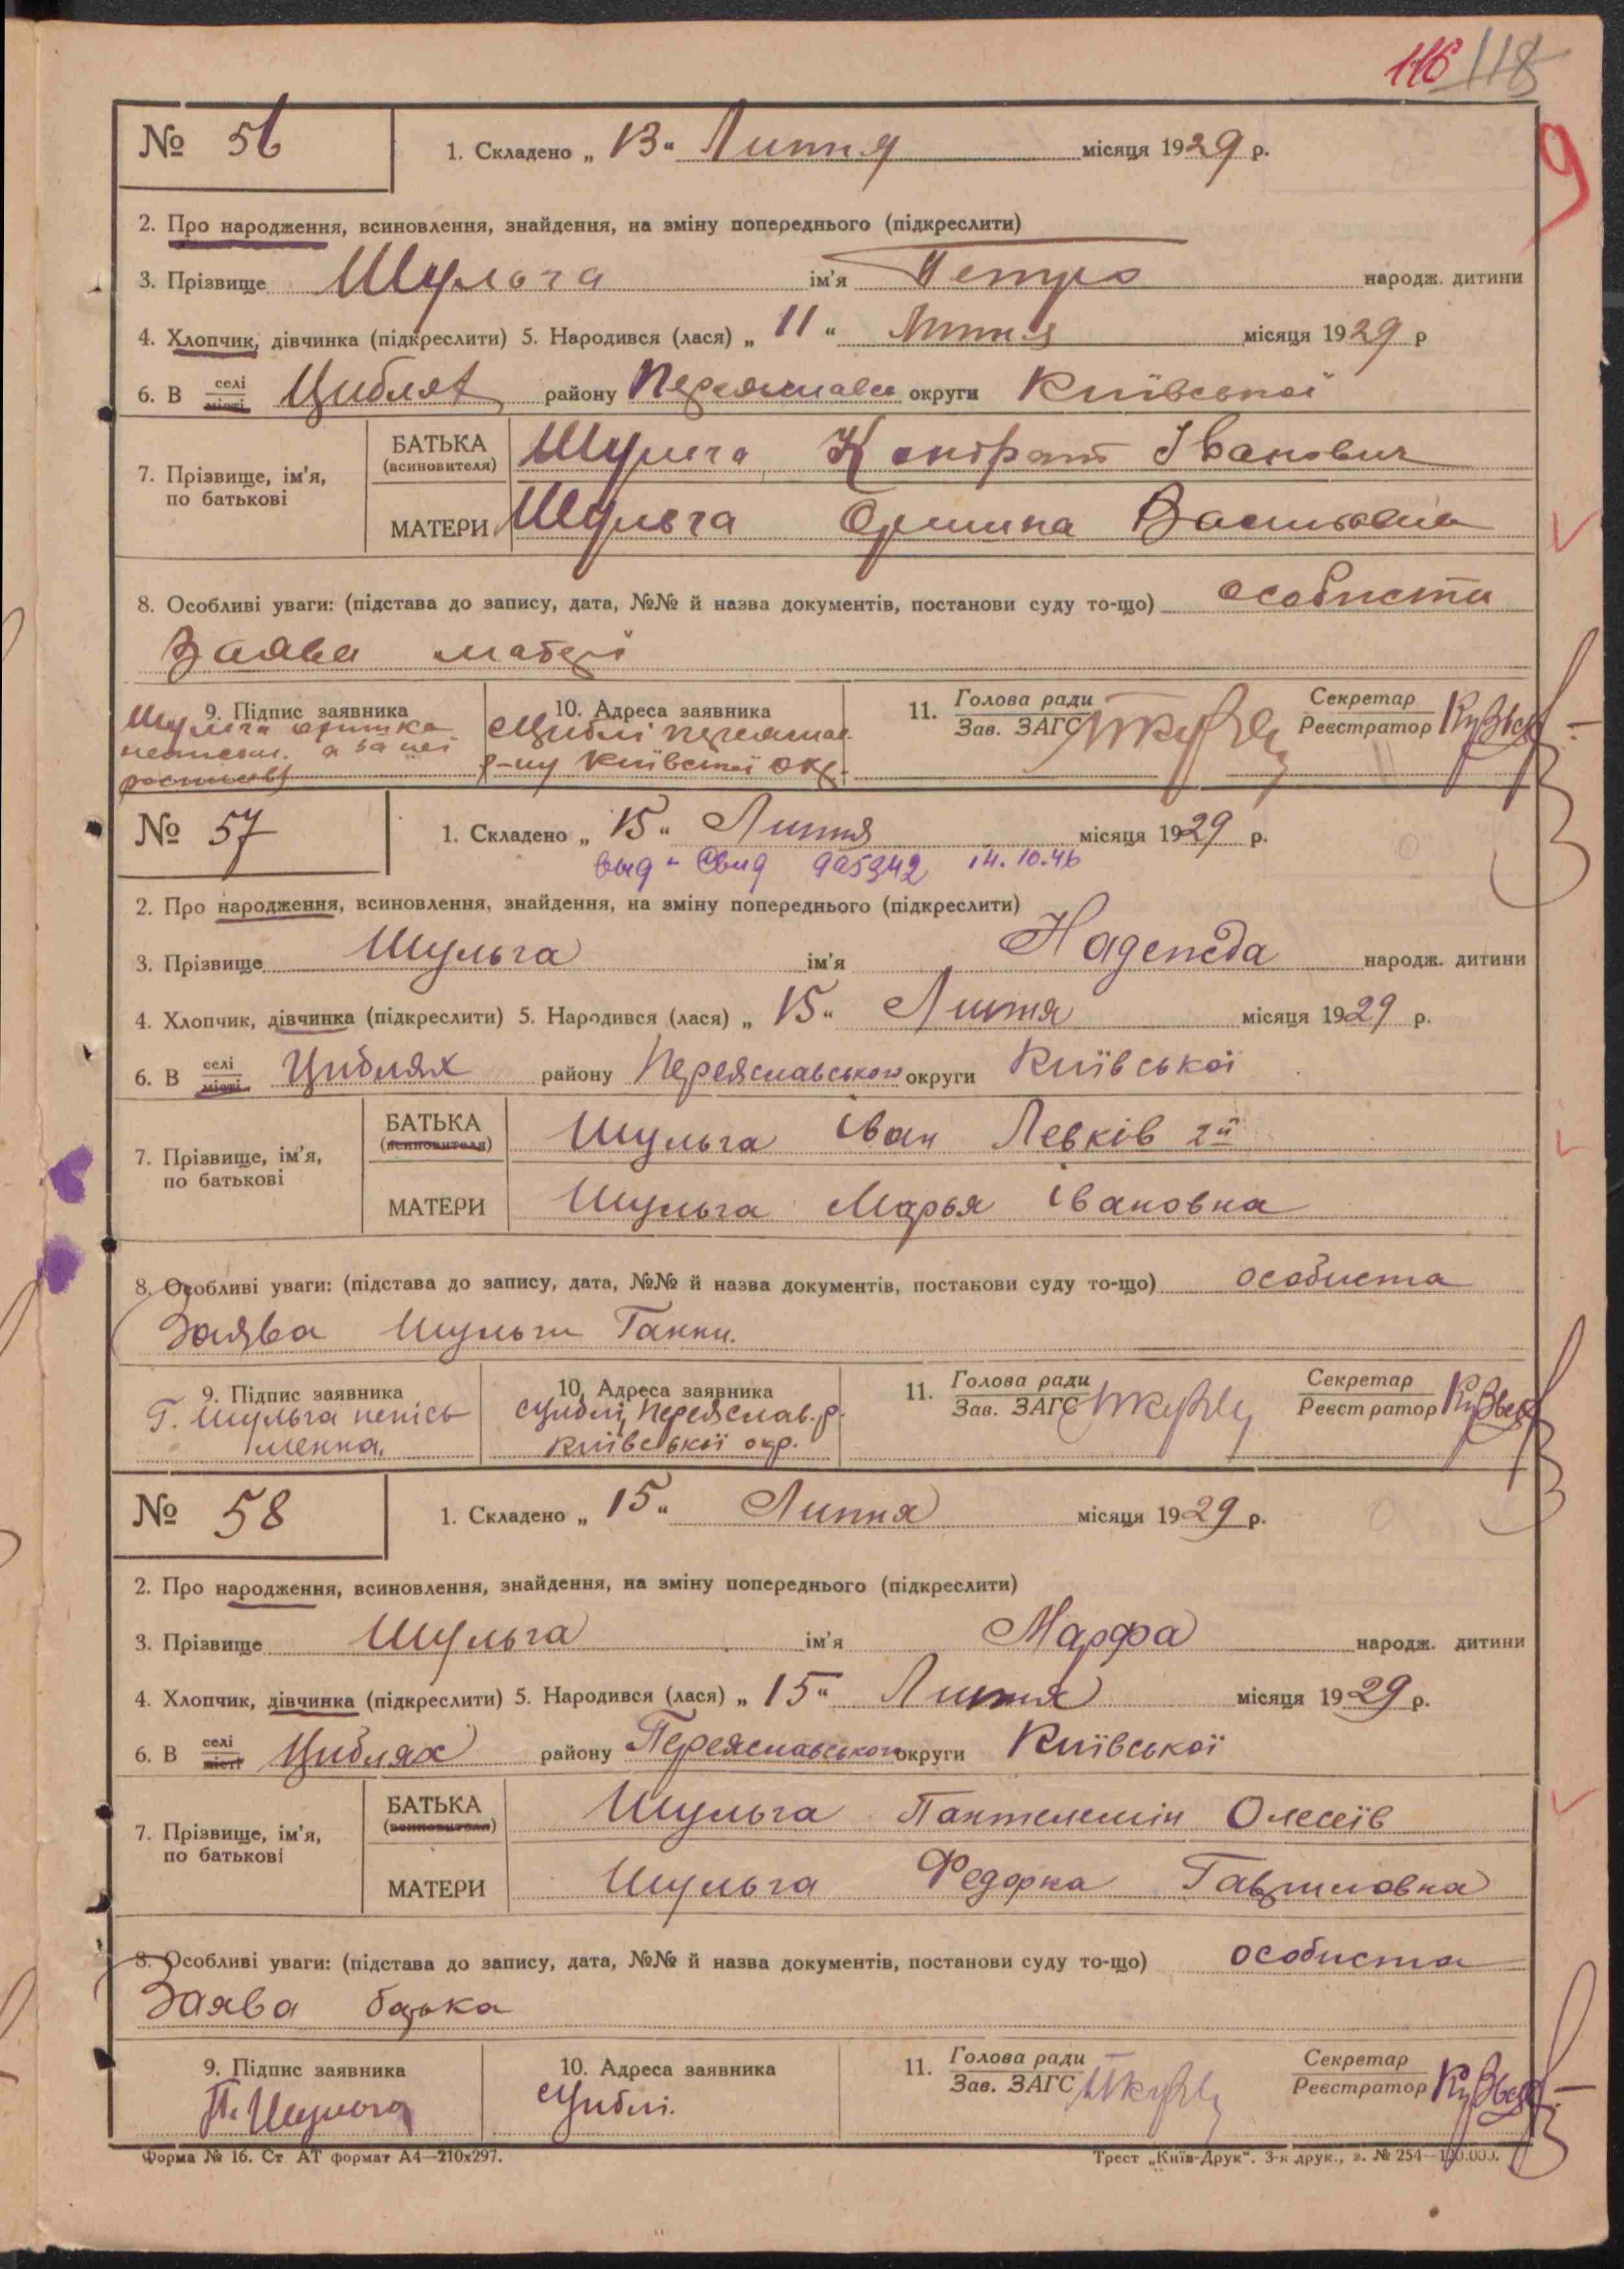 116 118
№ 56 1. Складено „ 13 “ Липня місяця 1929 р.
9
2. Про народження, всиновлення, знайдення, на зміну попереднього (підкреслити)
3. Прізвище Шульга ім'я Петро народж. дитини
4. Хлопчик, дівчинка (підкреслити) 5. Народився (лася) „ 11 “ Липня місяця 1929 р
6. В селі місті Циблях району Переяславс округи Київської
7. Прізвище, ім'я, по батькові
БАТЬКА (всиновителя) Шульга Кондрат Іванович
МАТЕРИ Шульга Оришка Васильовна
8. Особливі уваги: (підстава до запису, дата, №№ й назва документів, постанови суду то-що) особиста
Заява матері
9. Підпис заявника 10. Адреса заявника 11. Голова ради Зав. ЗАГС Секретар Реєстратор
Шульга Оришка с Циблі Переяслав.
неписьм. а за неї р-ну Київської окр.
№ 57 1. Складено „ 15 “ Липня місяця 1929 р.
14.10.46
2. Про народження, всиновлення, знайдення, на зміну попереднього (підкреслити)
3. Прізвище Шульга ім'я Надежда народж. дитини
4. Хлопчик, дівчинка (підкреслити) 5. Народився (лася) „ 15 “ Липня місяця 1929 р.
6. В селі місті Циблях району Переяславського округи Київської
7. Прізвище, ім'я, по батькові
БАТЬКА (всиновителя) Шульга Іван Левків 2й
МАТЕРИ Шульга Марья Івановна
8. Особливі уваги: (підстава до запису, дата, №№ й назва документів, постакови суду то-що) особиста
Заява Шульги Ганни.
9. Підпис заявника 10. Адреса заявника 11. Голова ради Зав. ЗАГС Секретар Реєстратор
Г. Шульга непісь с Циблі, Переяслав. р.
менна. Київської окр.
№ 58 1. Складено „ 15 “ Липня місяця 1929 р.
2. Про народження, всиновлення, знайдення, на зміну попереднього (підкреслити)
3. Прізвище Шульга ім'я Марфа народж. дитини
4. Хлопчик, дівчинка (підкреслити) 5. Народився (лася) „ 15 “ Липня місяця 1929 р.
6. В селі місті Циблях району Переяславського округи Київської
7. Прізвище, ім'я, по батькові
БАТЬКА (всиновителя) Шульга Пантелемін Олесеїв
МАТЕРИ Шульга Федорка Гавриловна
8. Особливі уваги: (підстава до запису, дата, №№ й назва документів, постанови суду то-що) особиста
Заява батька
9. Підпис заявника 10. Адреса заявника 11. Голова ради Зав. ЗАГС Секретар Реєстратор
П. Шульга с Циблі.
Форма № 16. Ст АТ формат А4—210х297. Трест „Київ-Друк“. 3-я друк., з. № 254—100.000.